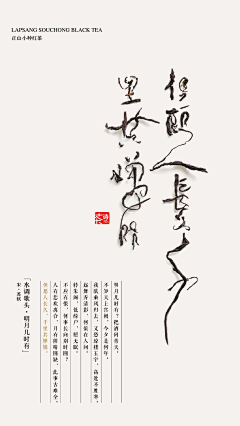 LAPSANG SOUCHONG BLACK TEA
正山小种红茶
但愿人长久
千里共婵娟
「水调歌头·明月几时有」
宋·苏轼
明月几时有？把酒问青天。
不知天上宫阙，今夕是何年。
我欲乘风归去，又恐琼楼玉宇，高处不胜寒。
起舞弄清影，何似在人间。
转朱阁，低绮户，照无眠。
不应有恨，何事长向别时圆？
人有悲欢离合，月有阴晴圆缺，此事古难全。
但愿人长久，千里共婵娟。